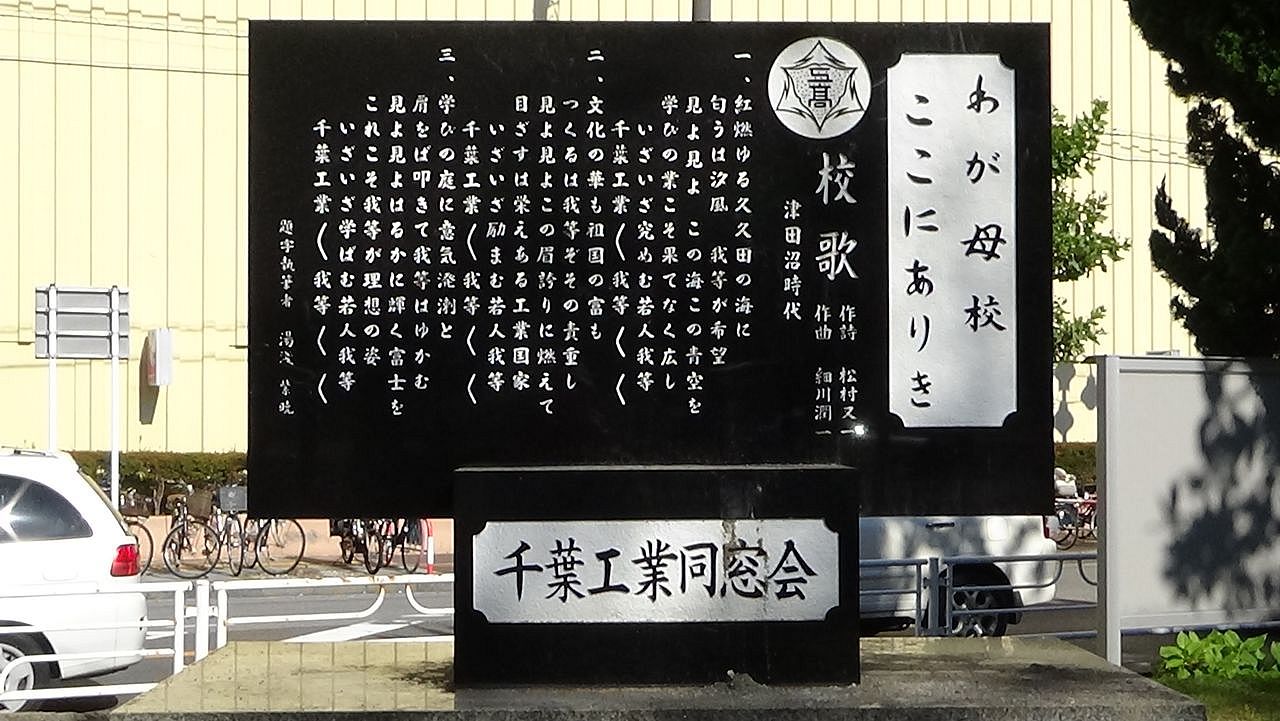 わが母校
ここにありき
工高
校歌
作詩 松村又一
作曲 細川潤一
津田沼時代
一、紅燃ゆる久久田の海に
匂うは汐風 我等が希望
見よ見よ この海この青空を
学びの業こそ果てなく広し
いざいざ究めむ若人我等
千葉工業〱我等〱〱
二、文化の華も祖国の富も
つくるは我等ぞその責重し
見よ見よこの眉誇りに燃えて
目ざすは栄えある工業国家
いざいざ励まむ若人我等
千葉工業〱我等〱〱
三、学びの庭に意気溌溂と
肩をば叩きて我等はゆかむ
見よ見よはるかに輝く富士を
これこそ我等が理想の姿
いざいざ学ばむ若人我等
千葉工業〱我等〱〱
題字執筆者 湯浅
千葉工業同窓会